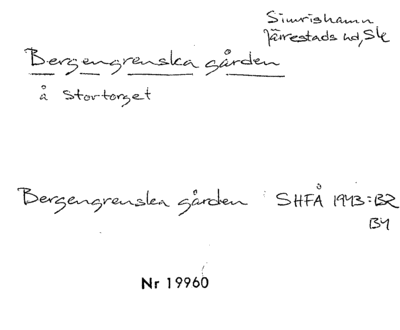 Simrishamn
Järrestads hd, Sk
Bergengrenska gården
å Stortorget
Bergengrenska gården SHFÅ 1943:B2
B4
Nr 19960